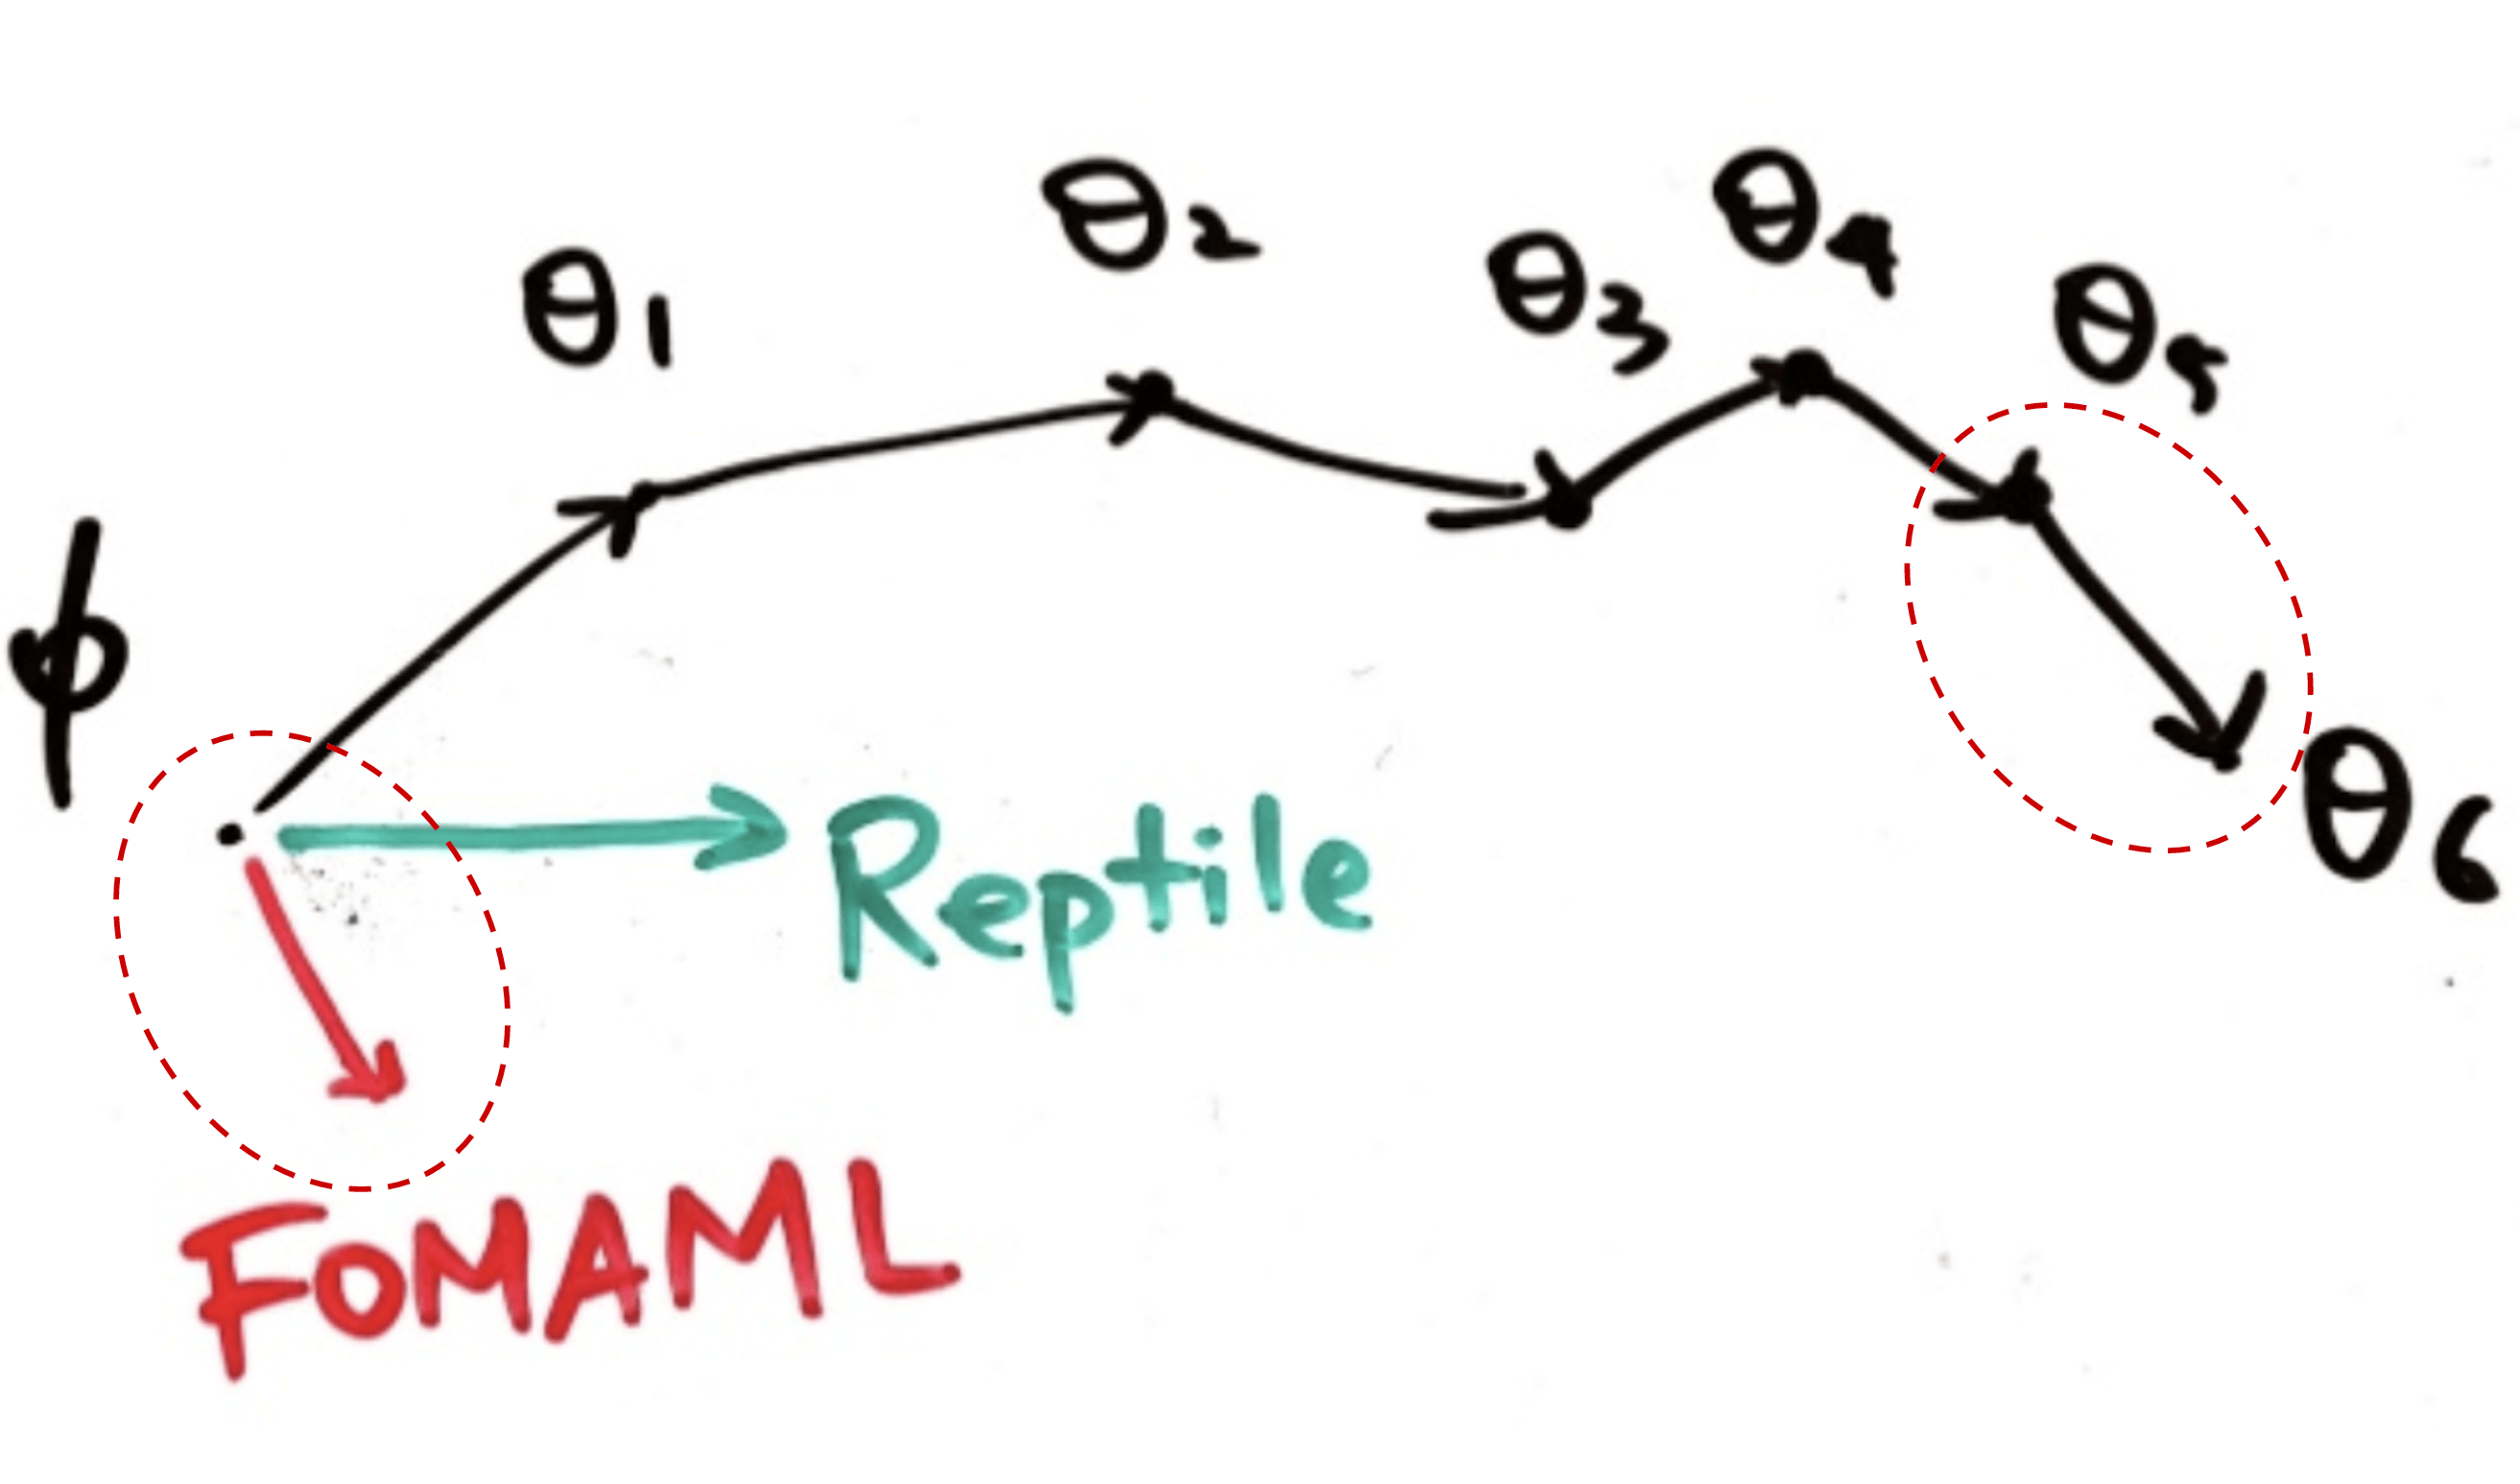 θ1
θ2
θ3
θ4
θ5
ϕ
θ6
Reptile
FOMAML